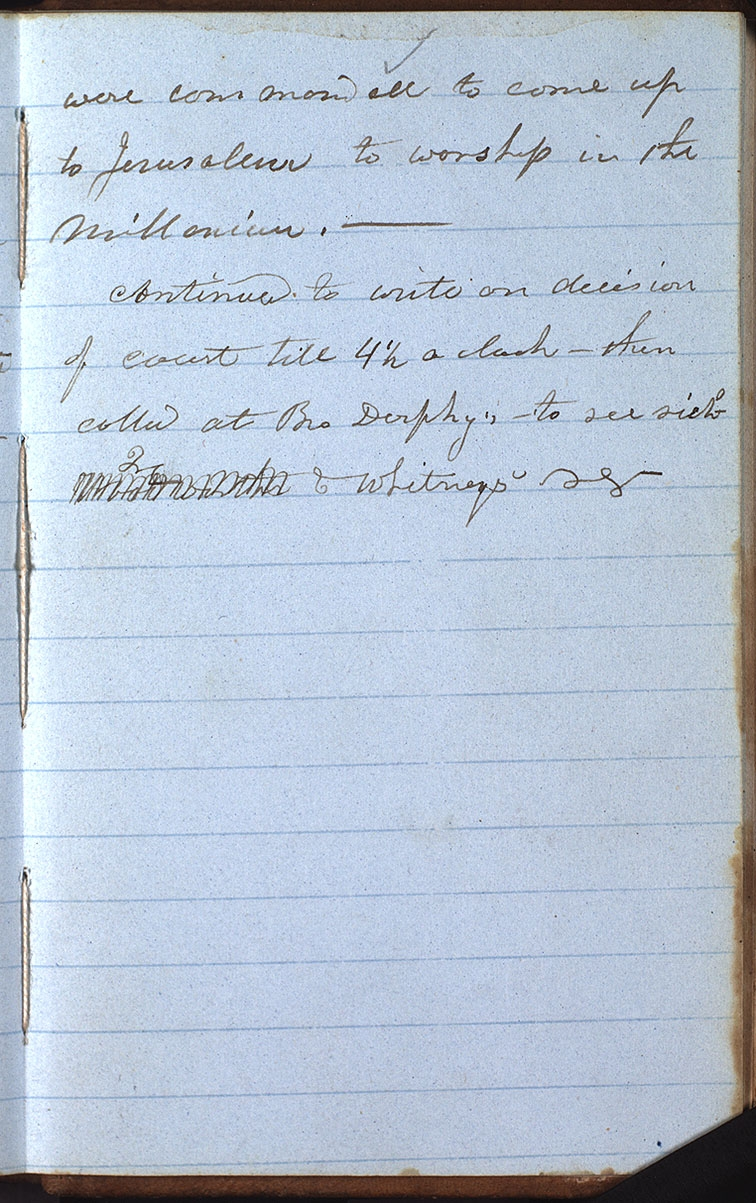 were commanded to come up
to Jerusalem to worship in the
Millenium. —
continued. to write on decision
of court till 4½ o clock — then
called at Bro Durphy's — to see sick
& Whitneys